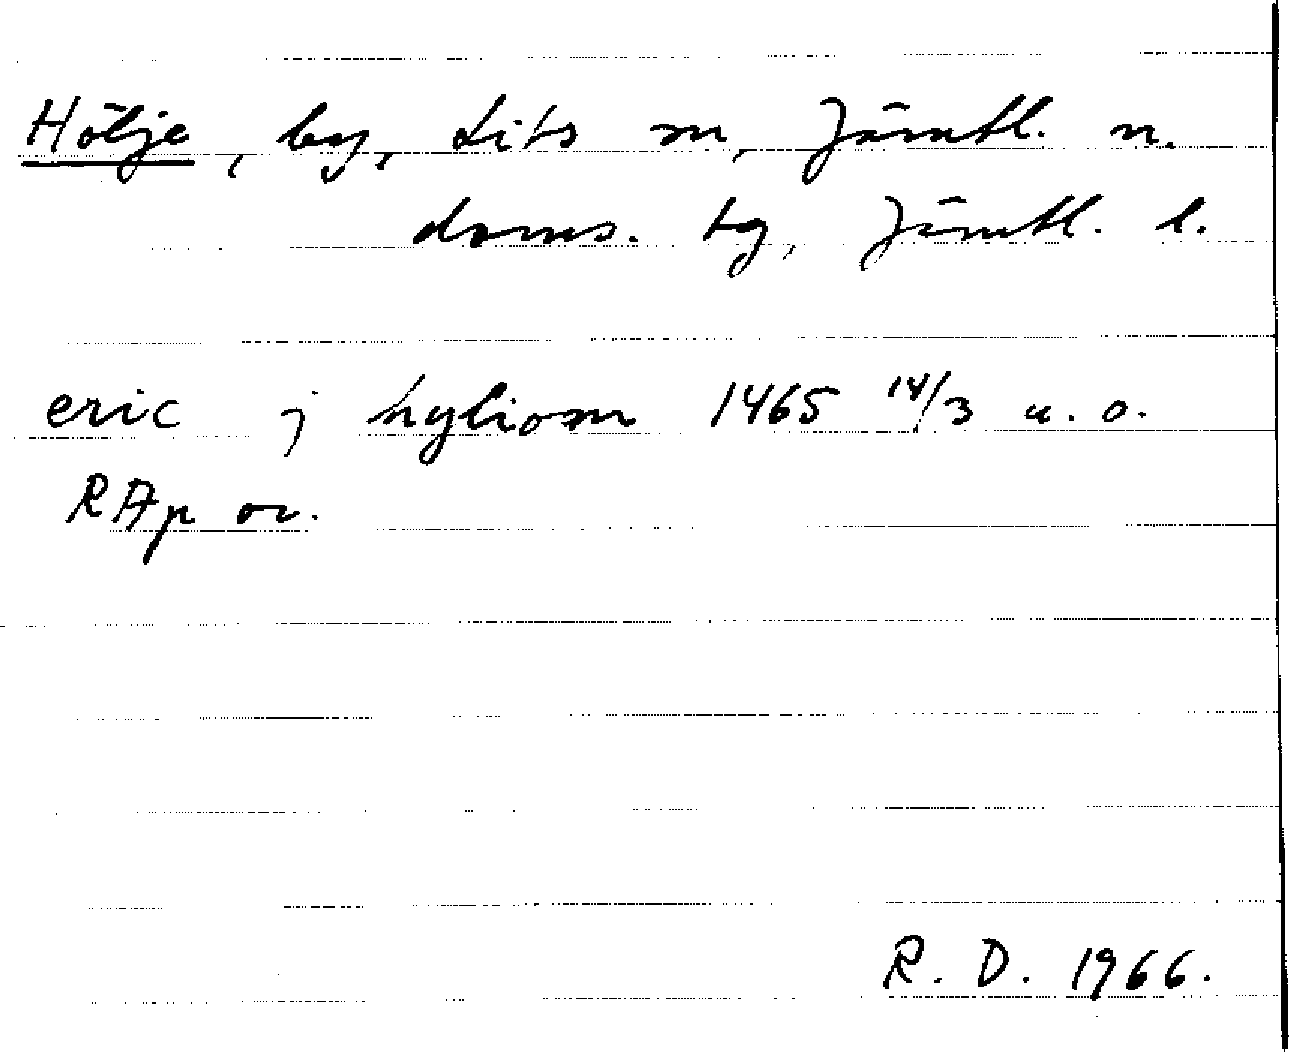 Hölje, by, Lits sn, Jämtl. n.
doms. tg, Jämtl. l.
eric j hyliom 1465 14/3 u. o.
RAp or.
R. D. 1966.